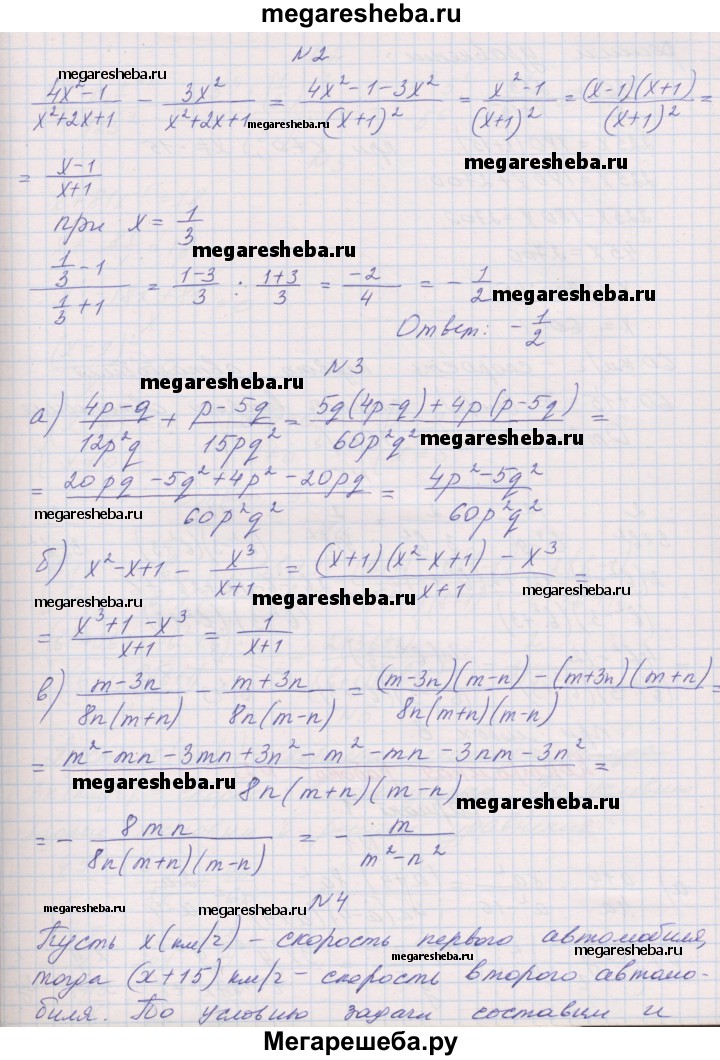 megaresheba.ru
N2
(4x²-1)/(x²+2x+1) - 3x²/(x²+2x+1) = (4x²-1-3x²)/(x+1)² = (x²-1)/(x+1)² = (x-1)(x+1)/(x+1)² =
megaresheba.ru
megaresheba.ru
megaresheba.ru
= (x-1)/(x+1)
при x = 1/3
megaresheba.ru
(1/3 - 1)/(1/3 + 1) = (1-3)/3 : (1+3)/3 = -2/4 = -1/2
megaresheba.ru
Ответ: -1/2
N3
megaresheba.ru
а) (4p-q)/(12p²q) + (p-5q)/(15pq²) = (5q(4p-q)+4p(p-5q))/(60p²q²) =
megaresheba.ru
= (20pq-5q²+4p²-20pq)/(60p²q²) = (4p²-5q²)/(60p²q²)
megaresheba.ru
б) x²-x+1 - x³/(x+1) = ((x+1)(x²-x+1)-x³)/(x+1) =
megaresheba.ru
megaresheba.ru
megaresheba.ru
= (x³+1-x³)/(x+1) = 1/(x+1)
в) (m-3n)/(8n(m+n)) - (m+3n)/(8n(m-n)) = ((m-3n)(m-n)-(m+3n)(m+n))/(8n(m+n)(m-n)) =
= (m²-mn-3mn+3n²-m²-mn-3nm-3n²)/(8n(m+n)(m-n)) =
megaresheba.ru
megaresheba.ru
= - 8mn/(8n(m+n)(m-n)) = - m/(m²-n²)
N4
megaresheba.ru
megaresheba.ru
Пусть x(км/ч) - скорость первого автомобиля,
megaresheba.ru
тогда (x+15) км/ч - скорость второго автомо-
megaresheba.ru
megaresheba.ru
биля. По условию задачи составим и
Мегарешеба.ру